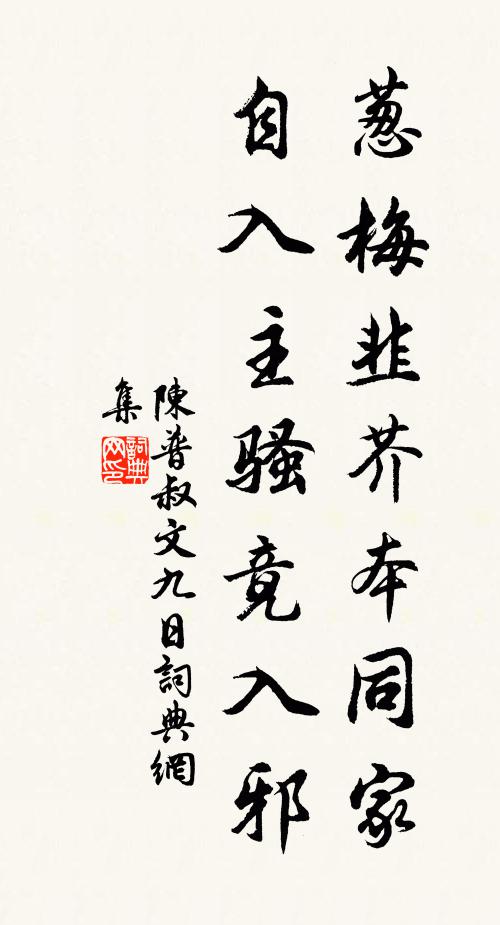 葱梅韭芥本同家
自入主骚竟入邪
陳普叔文九日詞典網
集
詞典網印